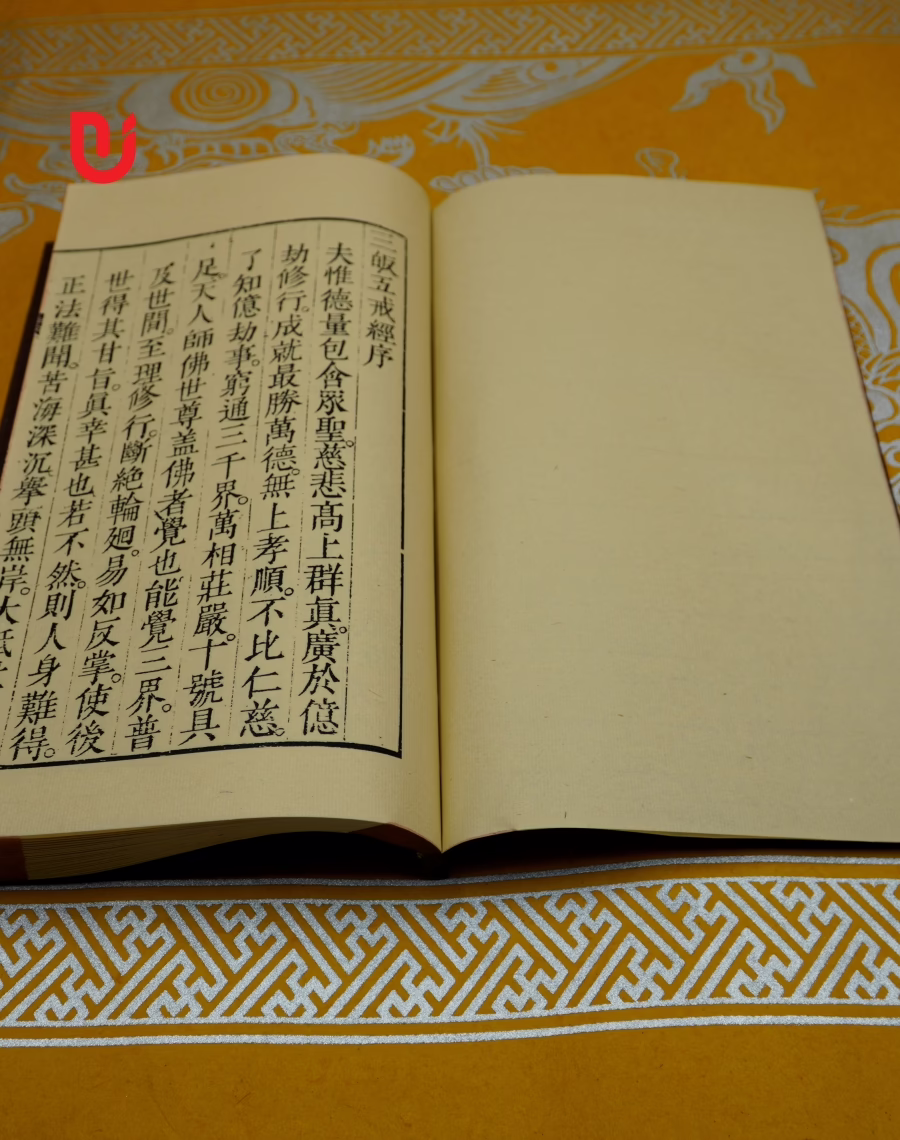 三皈五戒經序
夫惟德量包含眾聖。慈悲高上群眞。廣於億
劫修行。成就最勝萬德。無上孝順。不比仁慈。
了知億劫事。窮通三千界。萬相莊嚴。十號具
足。天人師佛世尊盖佛者覺也能覺三界。普
及世間。至理修行。斷絕輪廻。易如反掌。使後
世得其甘旨。眞幸甚也若不然。則人身難得。
正法難聞。苦海深沉擧頭無岸。大